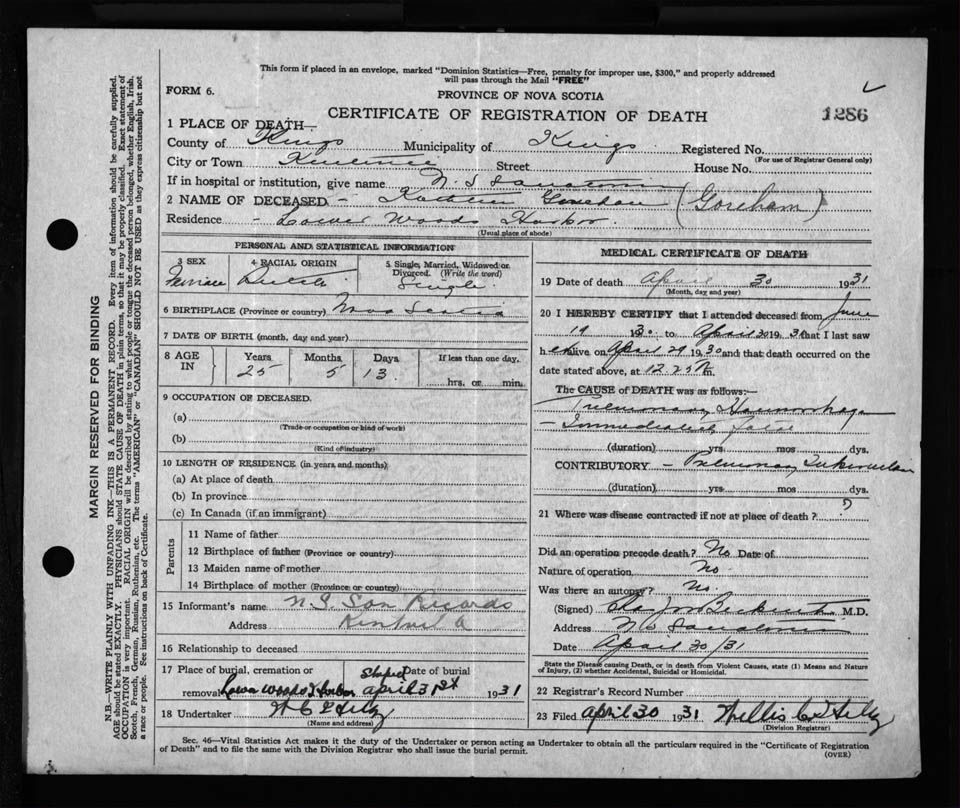 This form if placed in an envelope, marked "Dominion Statistics—Free, penalty for improper use, $300," and properly addressed
will pass through the Mail "FREE"
FORM 6.
PROVINCE OF NOVA SCOTIA
CERTIFICATE OF REGISTRATION OF DEATH
1286
1 PLACE OF DEATH—
County of Kings Municipality of Kings Registered No.
(For use of Registrar General only)
City or Town Street House No.
If in hospital or institution, give name N. S. Sanatorium
2 NAME OF DECEASED - Goreham (Goreham)
Residence - Lower Woods Harbor
(Usual place of abode)
PERSONAL AND STATISTICAL INFORMATION
3 SEX
4 RACIAL ORIGIN
5 Single, Married, Widowed or Divorced. (Write the word)
Female Dutch Single.
6 BIRTHPLACE (Province or country) Nova Scotia
7 DATE OF BIRTH (month, day and year)
8 AGE IN Years Months Days If less than one day,
25 5 13
hrs. or min.
9 OCCUPATION OF DECEASED.
(a)
(Trade or occupation or kind of work)
(b)
(Kind of industry)
10 LENGTH OF RESIDENCE (in years and months)
(a) At place of death
(b) In province
(c) In Canada (if an immigrant)
Parents
11 Name of father
12 Birthplace of father (Province or country)
13 Maiden name of mother
14 Birthplace of mother (Province or country)
15 Informant's name N. S. San Records
Address
16 Relationship to deceased
17 Place of burial, cremation or Date of burial
removal Woods Harbor April 31st 1931
18 Undertaker
(Name and address)
MEDICAL CERTIFICATE OF DEATH
19 Date of death April 30 1931
(Month, day and year)
20 I HEREBY CERTIFY that I attended deceased from June
19 30 to April 30 19 31 that I last saw
h er alive on April 29 19 30 and that death occurred on
date stated above, at 12.25 m.
The CAUSE of DEATH was as follows:—
Pulmonary Haemorrhage
- Immediately
(duration) yrs. mos. dys.
CONTRIBUTORY - Pulmonary Tuberculosis
(duration) yrs. mos. dys.
21 Where was disease contracted if not at place of death? ?
Did an operation precede death? No Date of
Nature of operation No.
Was there an autopsy? No
(Signed) M.D.
Address N S Sanatorium
Date April 30/31
State the Disease causing Death, or in death from Violent Causes, state (1) Means and Nature of Injury, (2) whether Accidental, Suicidal or Homicidal.
22 Registrar's Record Number
23 Filed April 30 1931
(Division Registrar)
Sec. 46—Vital Statistics Act makes it the duty of the Undertaker or person acting as Undertaker to obtain all the particulars required in the "Certificate of Registration
of Death" and to file the same with the Division Registrar who shall issue the burial permit.
(OVER)
MARGIN RESERVED FOR BINDING
N.B.—WRITE PLAINLY WITH UNFADING INK—THIS IS A PERMANENT RECORD. Every item of information should be carefully supplied.
AGE should be stated EXACTLY. PHYSICIANS should STATE CAUSE OF DEATH in plain terms, so that it may be properly classified. Exact statement of
OCCUPATION is very important. RACIAL ORIGIN will be described by stating to what people or tongue the deceased person belonged, whether English, Irish,
Scotch, French, German, Russian, Ruthenian, etc. The terms "AMERICAN" or "CANADIAN" SHOULD NOT BE USED as they express citizenship but not
a race or people. See instructions on back of Certificate.